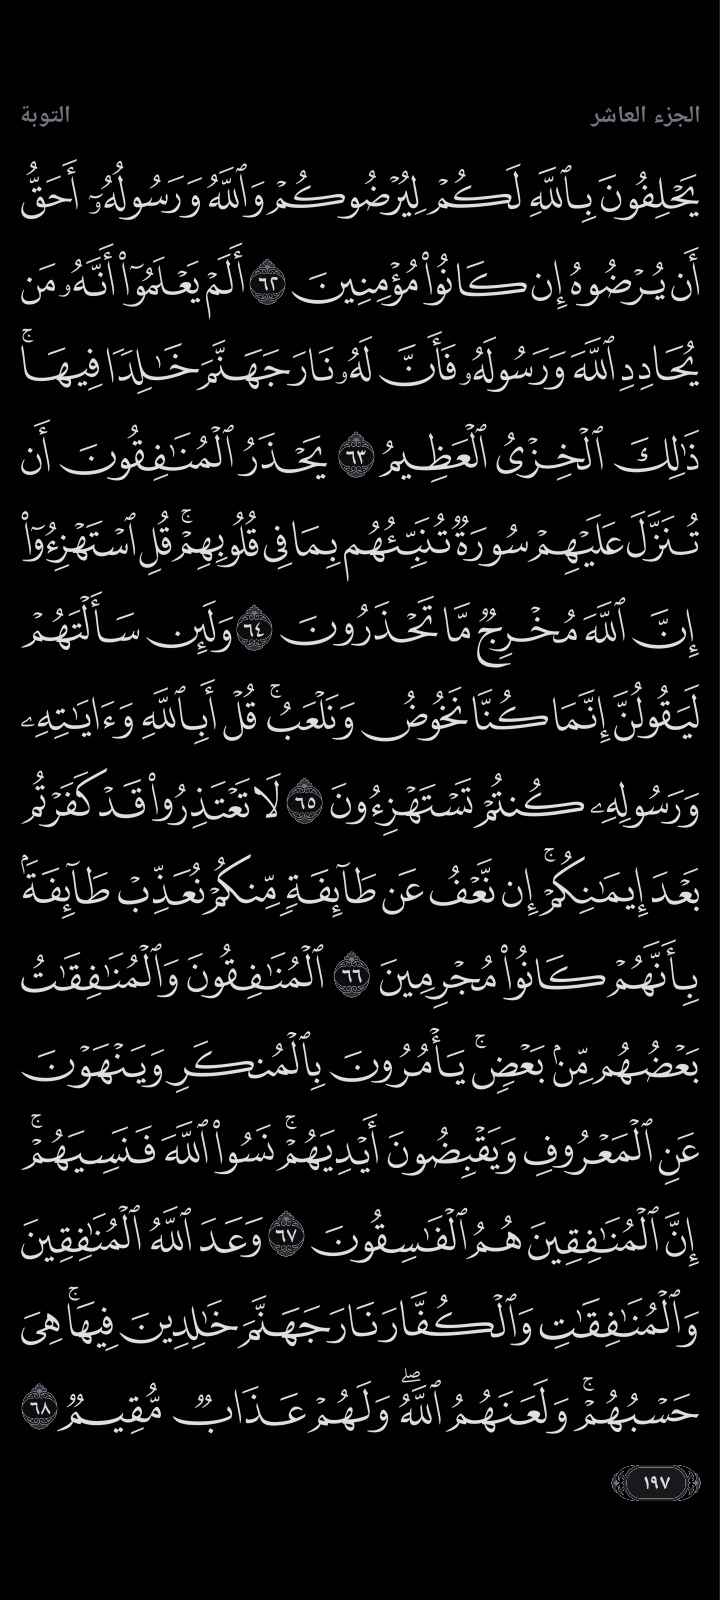 الجزء العاشر
التوبة
يَحۡلِفُونَ بِٱللَّهِ لَكُمۡ لِيُرۡضُوكُمۡ وَٱللَّهُ وَرَسُولُهُۥٓ أَحَقُّ
أَن يُرۡضُوهُ إِن كَانُواْ مُؤۡمِنِينَ ٦٢ أَلَمۡ يَعۡلَمُوٓاْ أَنَّهُۥ مَن
يُحَادِدِ ٱللَّهَ وَرَسُولَهُۥ فَأَنَّ لَهُۥ نَارَ جَهَنَّمَ خَٰلِدٗا فِيهَاۚ
ذَٰلِكَ ٱلۡخِزۡيُ ٱلۡعَظِيمُ ٦٣ يَحۡذَرُ ٱلۡمُنَٰفِقُونَ أَن
تُنَزَّلَ عَلَيۡهِمۡ سُورَةٞ تُنَبِّئُهُم بِمَا فِي قُلُوبِهِمۡۚ قُلِ ٱسۡتَهۡزِءُوٓاْ
إِنَّ ٱللَّهَ مُخۡرِجٞ مَّا تَحۡذَرُونَ ٦٤ وَلَئِن سَأَلۡتَهُمۡ
لَيَقُولُنَّ إِنَّمَا كُنَّا نَخُوضُ وَنَلۡعَبُۚ قُلۡ أَبِٱللَّهِ وَءَايَٰتِهِۦ
وَرَسُولِهِۦ كُنتُمۡ تَسۡتَهۡزِءُونَ ٦٥ لَا تَعۡتَذِرُواْ قَدۡ كَفَرۡتُم
بَعۡدَ إِيمَٰنِكُمۡۚ إِن نَّعۡفُ عَن طَآئِفَةٖ مِّنكُمۡ نُعَذِّبۡ طَآئِفَةَۢ
بِأَنَّهُمۡ كَانُواْ مُجۡرِمِينَ ٦٦ ٱلۡمُنَٰفِقُونَ وَٱلۡمُنَٰفِقَٰتُ
بَعۡضُهُم مِّنۢ بَعۡضٖۚ يَأۡمُرُونَ بِٱلۡمُنكَرِ وَيَنۡهَوۡنَ
عَنِ ٱلۡمَعۡرُوفِ وَيَقۡبِضُونَ أَيۡدِيَهُمۡۚ نَسُواْ ٱللَّهَ فَنَسِيَهُمۡۚ
إِنَّ ٱلۡمُنَٰفِقِينَ هُمُ ٱلۡفَٰسِقُونَ ٦٧ وَعَدَ ٱللَّهُ ٱلۡمُنَٰفِقِينَ
وَٱلۡمُنَٰفِقَٰتِ وَٱلۡكُفَّارَ نَارَ جَهَنَّمَ خَٰلِدِينَ فِيهَاۚ هِيَ
حَسۡبُهُمۡۚ وَلَعَنَهُمُ ٱللَّهُۖ وَلَهُمۡ عَذَابٞ مُّقِيمٞ ٦٨
١٩٧